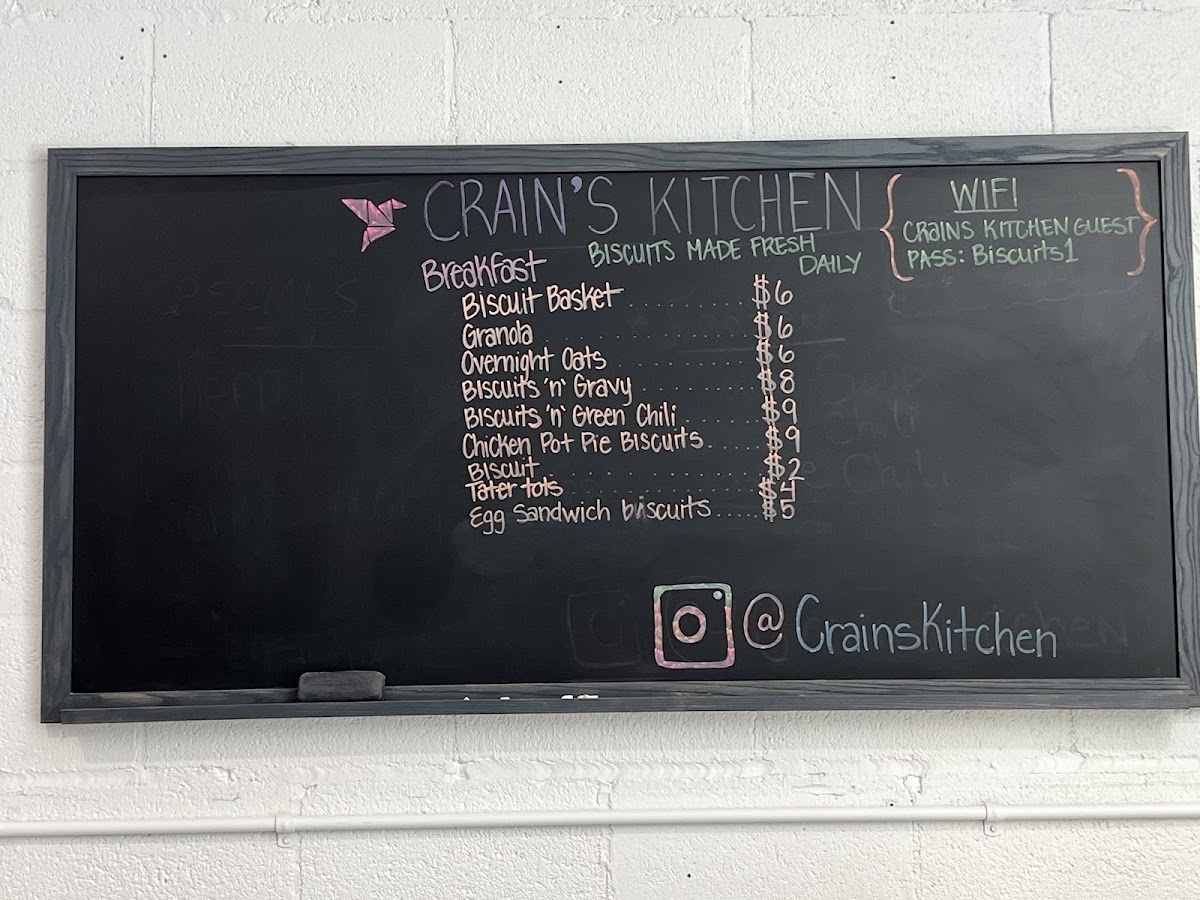 CRAIN'S KITCHEN
BISCUITS MADE FRESH
DAILY
WIFI
CRAINS KITCHEN GUEST
PASS: Biscuits1
Breakfast
Biscuit Basket ............ $6
Granola ............ $6
Overnight Oats ............ $6
Biscuits 'n' Gravy ............ $8
Biscuits 'n' Green Chili ......... $9
Chicken Pot Pie Biscuits ....... $9
Biscuit ............ $2
Tater tots ............ $4
Egg Sandwich biscuits ..... $5
@CrainsKitchen